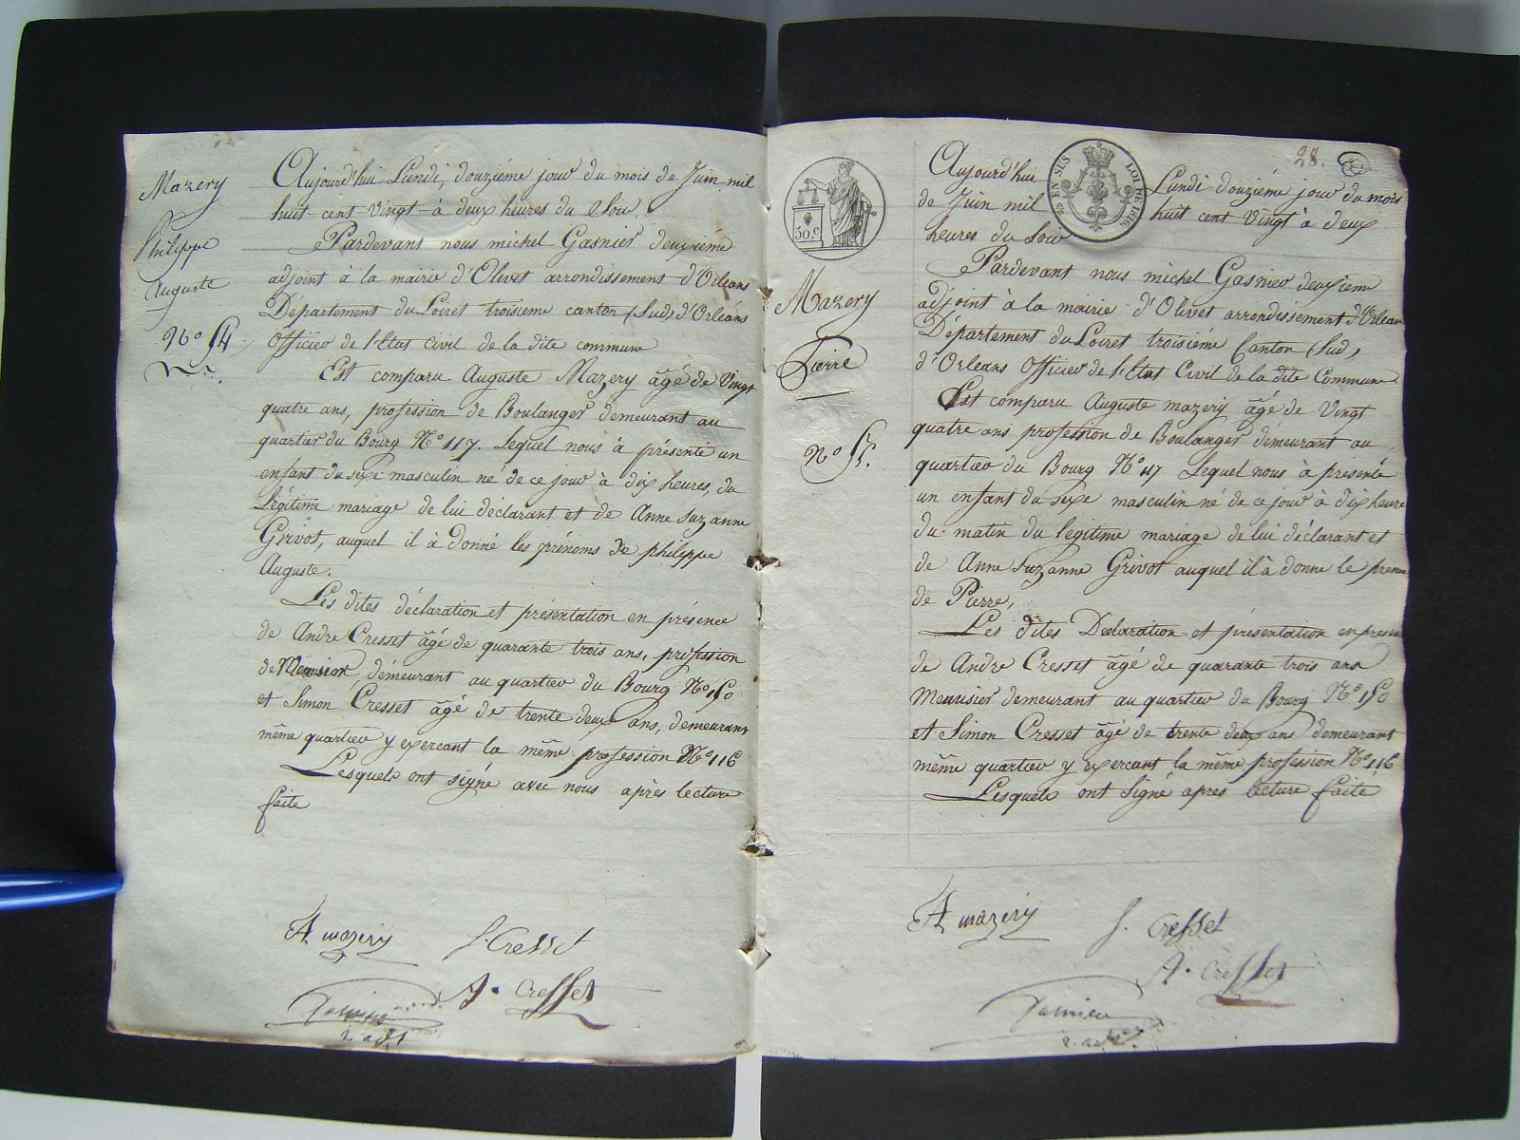 Mazery
Philippe
Auguste
N° 54
Aujourd'hui Lundi, douzième jour du mois de Juin mil
huit-cent Vingt à deux heures du Soir.
Pardevant nous michel Gasnier deuxième
adjoint à la mairie d'Olivet arrondissement d'Orléans
Département du Loiret troisieme canton (Sud) d'Orléans
Officier de l'Etat civil de la dite commune
Est comparu Auguste Mazery âgé de Vingt
quatre ans, profession de Boulanger demeurant au
quartier du Bourg N° 117. Lequel nous à présenté un
enfant du sexe masculin né de ce jour à dix heures, du
Légitime mariage de lui déclarant et de Anne Suzanne
Grivot, auquel il à donné les prénoms de philippe
Auguste.
Les dites déclaration et présentation en présence
de André Cresset âgé de quarante trois ans, profession
de demeurant au quartier du Bourg N° 150
et Simon Cresset âgé de trente deux ans, demeurant
même quartier y exercant la même profession N° 116
Lesquels ont signé avec nous après lecture
faite
A mazery S. Cresset
A. Cresset
Gasnier
2. adjt
28.
50 c
EN SUS
LOI DE 1816
Mazery
Pierre
N° 55.
Aujourd'hui Lundi douzième jour du mois
de Juin mil huit cent Vingt à deux
heures du Soir
Pardevant nous michel Gasnier deuxieme
adjoint à la mairie d'Olivet arrondissement d'Orléans
Département du Loiret troisième Canton (Sud)
d'Orléans Officier de l'Etat Civil de la dite Commune
Est comparu Auguste mazery âgé de Vingt
quatre ans profession de Boulanger demeurant au
quartier du Bourg N° 117 Lequel nous à presenté
un enfant du sexe masculin né de ce jour à dix heure
du matin du légitime mariage de lui déclarant et
de Anne Suzanne Grivot auquel il à donné le prenom
de Pierre,
Les dites Declaration et présentation en presence
de André Cresset âgé de quarante trois ans
Menuisier demeurant au quartier du Bourg N° 150
et Simon Cresset âgé de trente deux ans demeurant
même quartier y exercant la même profession N° 116
Lesquels ont Signé apres lecture faite
A mazery S. Cresset
A. Cresset
Gasnier
2. adjt